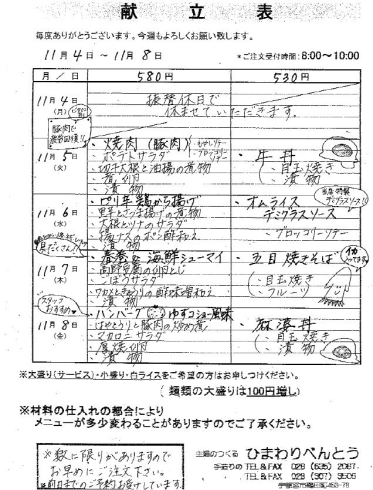 献立表
毎度ありがとうございます。今週もよろしくお願い致します。
11月4日〜11月8日 *ご注文受付時間:8:00〜10:00
月/日 580円 530円
11月4日(月) 振替休日で
休ませていただきます。
豚肉で
11月5日(火)
・焼肉(豚肉)
・ポテトサラダ
・切干大根と油揚の煮物
・漬物
・牛丼
・目玉焼き
・漬物
11月6日(水)
・ピリ辛鶏から揚げ
・大根とツナのサラダ
・揚ナスのポン酢和え
・漬物
・オムライス
デミグラスソース
・ブロッコリーソテー
11月7日(木)
・春巻&海鮮シューマイ
・高野豆腐の卵とじ
・ごぼうサラダ
・わかめときゅうりの酢味噌和え
・漬物
・五目焼きそば
・目玉焼き
・フルーツ
スタッフ
おすすめ
11月8日(金)
・ハンバーグ ゆずコショー風味
・はやとうりと豚肉の炒め煮
・マカロニサラダ
・漬物
・麻婆丼
・目玉焼き
・漬物
※大盛り(サービス)・小盛り・白ライスをご希望の方はお申しつけください。
(麺類の大盛りは100円増し)
※材料の仕入れの都合により
メニューが多少変わることがありますのでご了承ください。
※数に限りがありますので
お早めにご注文下さい。
※前日までのご予約お受けしています。
主婦のつくる ひまわりべんとう
手造りの TEL&FAX 028 (635) 2087.
TEL&FAX 028 (307) 3505